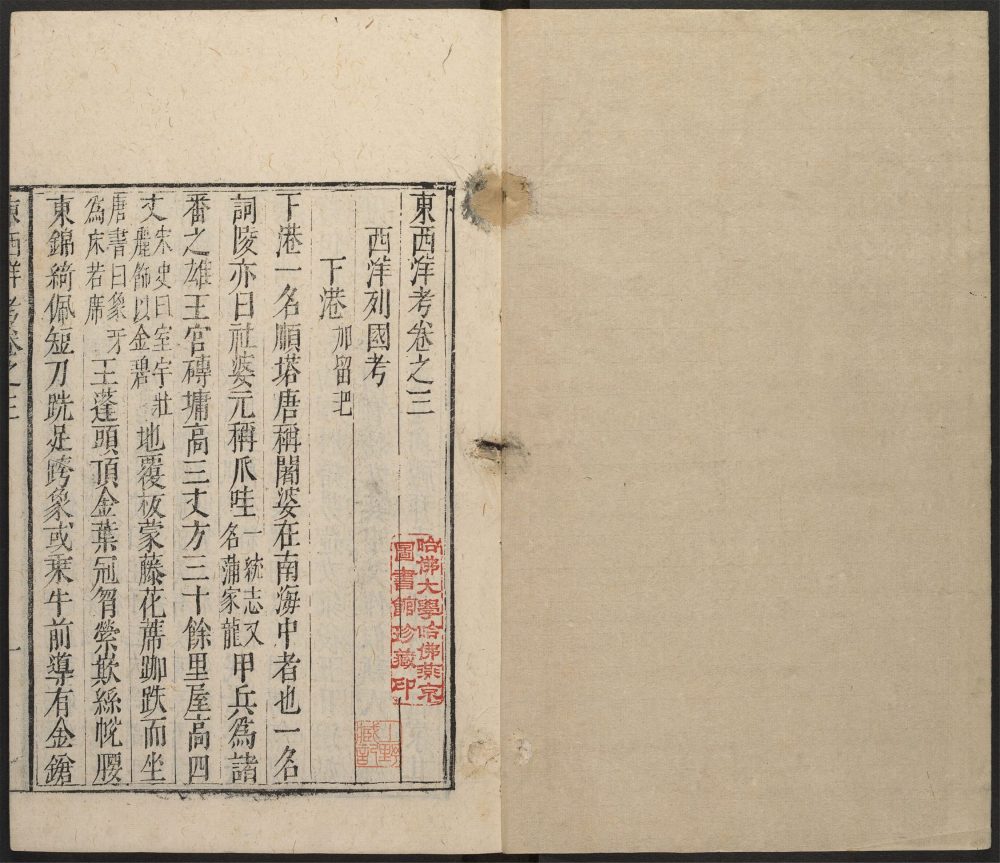 東西洋考卷之三
西洋列國考
下港 加留𠯗
下港一名順塔唐稱闍婆在南海中者也一名
訶陵亦曰社婆元稱爪哇一統志又名蒲家龍甲兵為諸
番之雄王宮磚墉高三丈方三十餘里屋高四
丈宋史曰室宇壯麗飾以金碧地覆板蒙藤花蓆跏趺而坐
唐書曰象牙為床若席王蓬頭頂金葉冠胷縈欺絲帨腰
東錦綺佩短刀跣足跨象或乘牛前導有金鎗
東西洋考卷之三
一
哈佛大學哈佛燕京
圖書館珍藏印